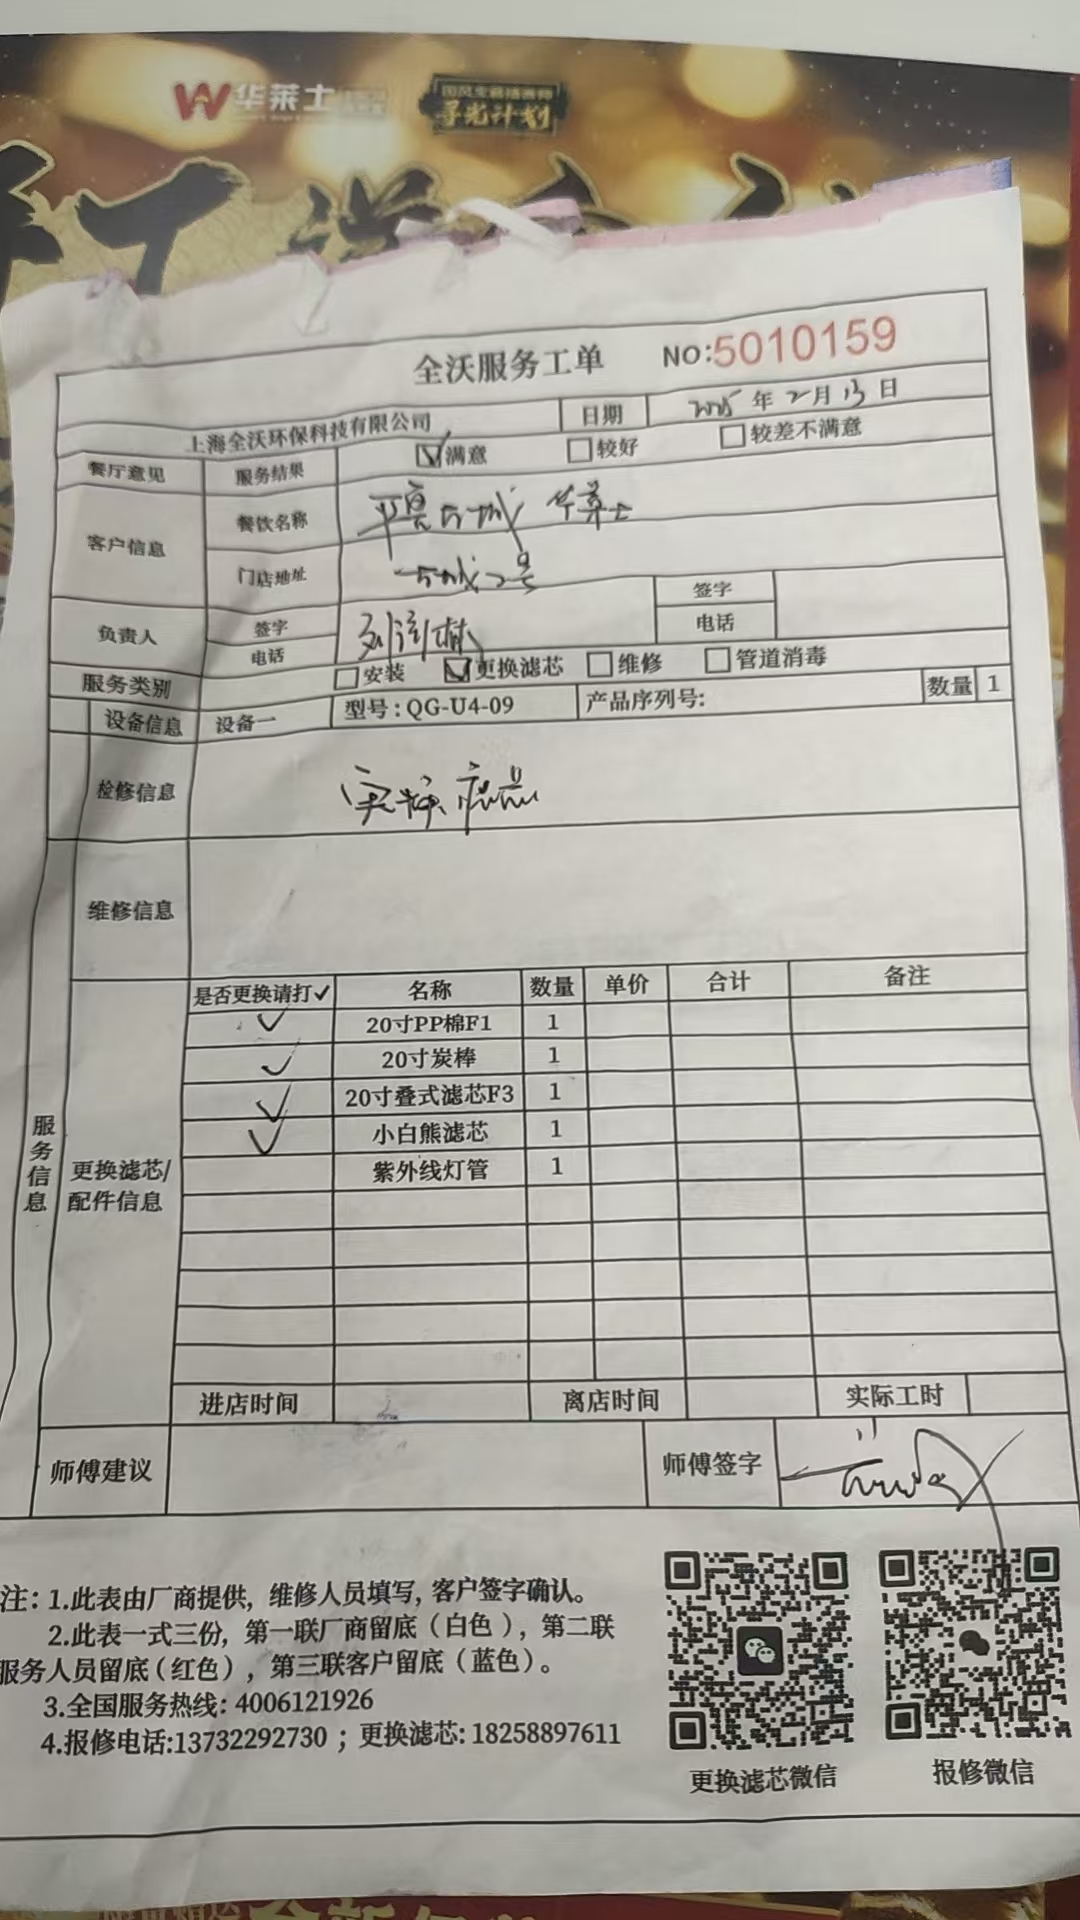 华莱士
寻光计划
全沃服务工单 NO:5010159
上海全沃环保科技有限公司 日期 2025年2月13日
餐厅意见 服务结果 满意 较好 较差不满意
客户信息 餐饮名称 华莱士
门店地址 古城2号
负责人 签字 签字
电话 电话
服务类别 安装 更换滤芯 维修 管道消毒
设备信息 设备一 型号:QG-U4-09 产品序列号: 数量 1
检修信息
维修信息
服务信息
更换滤芯/配件信息
是否更换请打✓ 名称 数量 单价 合计 备注
✓ 20寸PP棉F1 1
✓ 20寸炭棒 1
✓ 20寸叠式滤芯F3 1
✓ 小白熊滤芯 1
紫外线灯管 1
进店时间 离店时间 实际工时
师傅建议 师傅签字
注:1.此表由厂商提供,维修人员填写,客户签字确认。
2.此表一式三份,第一联厂商留底(白色),第二联
服务人员留底(红色),第三联客户留底(蓝色)。
3.全国服务热线:4006121926
4.报修电话:13732292730;更换滤芯:18258897611
更换滤芯微信 报修微信